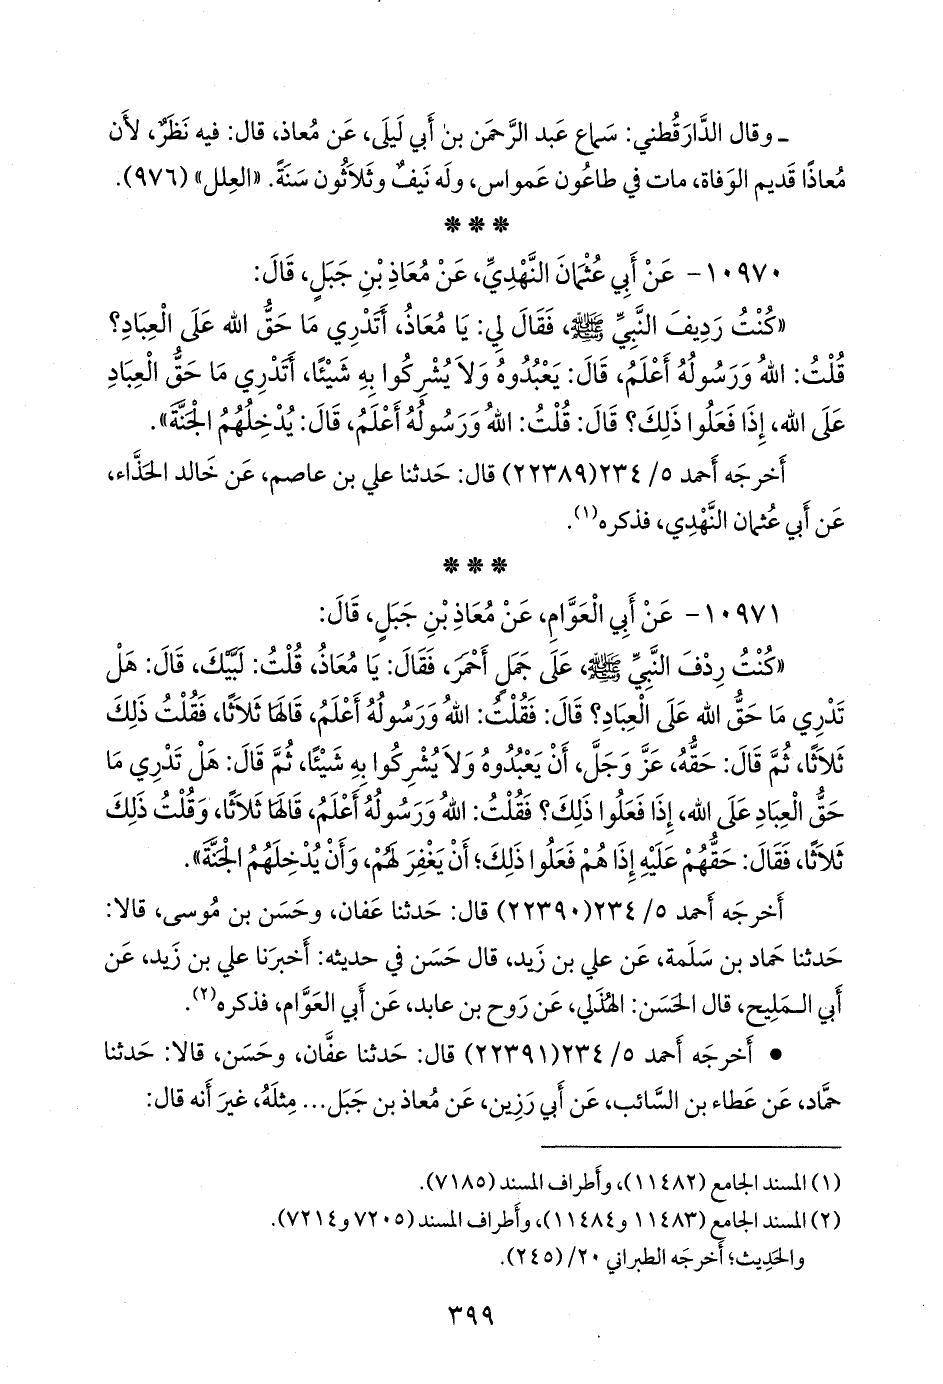 ـ وقال الدَّارَقُطني: سَماع عَبد الرَّحمَن بن أَبي لَيلَى، عَن مُعاذ، قال: فيه نَظَرٌ، لأَن
مُعاذًا قَديم الوَفاة، مات في طاعُون عَمواس، وله نَيفٌ وثَلاثُون سَنَةً. «العِلل» (٩٧٦).
* * *
١٠٩٧٠- عَنْ أَبِي عُثْمَانَ النَّهْدِيِّ، عَنْ مُعَاذِ بْنِ جَبَلٍ، قَالَ:
«كُنْتُ رَدِيفَ النَّبِيِّ ﷺ، فَقَالَ لِي: يَا مُعَاذُ، أَتَدْرِي مَا حَقُّ الله عَلَى الْعِبَادِ؟
قُلْتُ: اللهُ وَرَسُولُهُ أَعْلَمُ، قَالَ: يَعْبُدُوهُ وَلاَ يُشْرِكُوا بِهِ شَيْئًا، أَتَدْرِي مَا حَقُّ الْعِبَادِ
عَلَى الله، إِذَا فَعَلُوا ذَلِكَ؟ قَالَ: قُلْتُ: اللهُ وَرَسُولُهُ أَعْلَمُ، قَالَ: يُدْخِلُهُمُ الْجَنَّةَ».
أَخرجَه أَحمد ٥/ ٢٣٤(٢٢٣٨٩) قال: حَدثنا علي بن عاصم، عَن خَالد الحَذَّاء،
عَن أَبي عُثمان النَّهْدِي، فذكره(١).
* * *
١٠٩٧١- عَنْ أَبِي الْعَوَّامِ، عَنْ مُعَاذِ بْنِ جَبَلٍ، قَالَ:
«كُنْتُ رِدْفَ النَّبِيِّ ﷺ، عَلَى جَمَلٍ أَحْمَرَ، فَقَالَ: يَا مُعَاذُ، قُلْتُ: لَبَّيْكَ، قَالَ: هَلْ
تَدْرِي مَا حَقُّ الله عَلَى الْعِبَادِ؟ قَالَ: فَقُلْتُ: اللهُ وَرَسُولُهُ أَعْلَمُ، قَالَهَا ثَلاَثًا، فَقُلْتُ ذَلِكَ
ثَلاَثًا، ثُمَّ قَالَ: حَقُّهُ، عَزَّ وَجَلَّ، أَنْ يَعْبُدُوهُ وَلاَ يُشْرِكُوا بِهِ شَيْئًا، ثُمَّ قَالَ: هَلْ تَدْرِي مَا
حَقُّ الْعِبَادِ عَلَى الله، إِذَا فَعَلُوا ذَلِكَ؟ فَقُلْتُ: اللهُ وَرَسُولُهُ أَعْلَمُ، قَالَهَا ثَلاَثًا، وَقُلْتُ ذَلِكَ
ثَلاَثًا، فَقَالَ: حَقُّهُمْ عَلَيْهِ إِذَا هُمْ فَعَلُوا ذَلِكَ؛ أَنْ يَغْفِرَ لَهُمْ، وَأَنْ يُدْخِلَهُمُ الْجَنَّةَ».
أَخرجَه أَحمد ٥/ ٢٣٤(٢٢٣٩٠) قال: حَدثنا عَفان، وحَسَن بن مُوسى، قالا:
حَدثنا حَماد بن سَلَمة، عَن علي بن زَيد، قال حَسَن في حديثه: أَخبرَنا علي بن زَيد، عَن
أَبي الـمَلِيح، قال الحَسَن: الهُذَلي، عَن رَوح بن عابد، عَن أَبي العَوَّام، فذكره(٢).
• أَخرجَه أَحمد ٥/ ٢٣٤(٢٢٣٩١) قال: حَدثنا عفَّان، وحَسَن، قالا: حَدثنا
حمَّاد، عَن عَطاء بن السَّائب، عَن أَبي رَزِين، عَن مُعاذ بن جَبَل... مِثلَهُ، غيرَ أَنه قال:
(١) المسند الجامع (١١٤٨٢)، وأَطراف المسند (٧١٨٥).
(٢) المسند الجامع (١١٤٨٣ و١١٤٨٤)، وأَطراف المسند (٧٢٠٥ و٧٢١٤).
والحَدِيث؛ أَخرجَه الطبراني ٢٠/ (٢٤٥).
٣٩٩